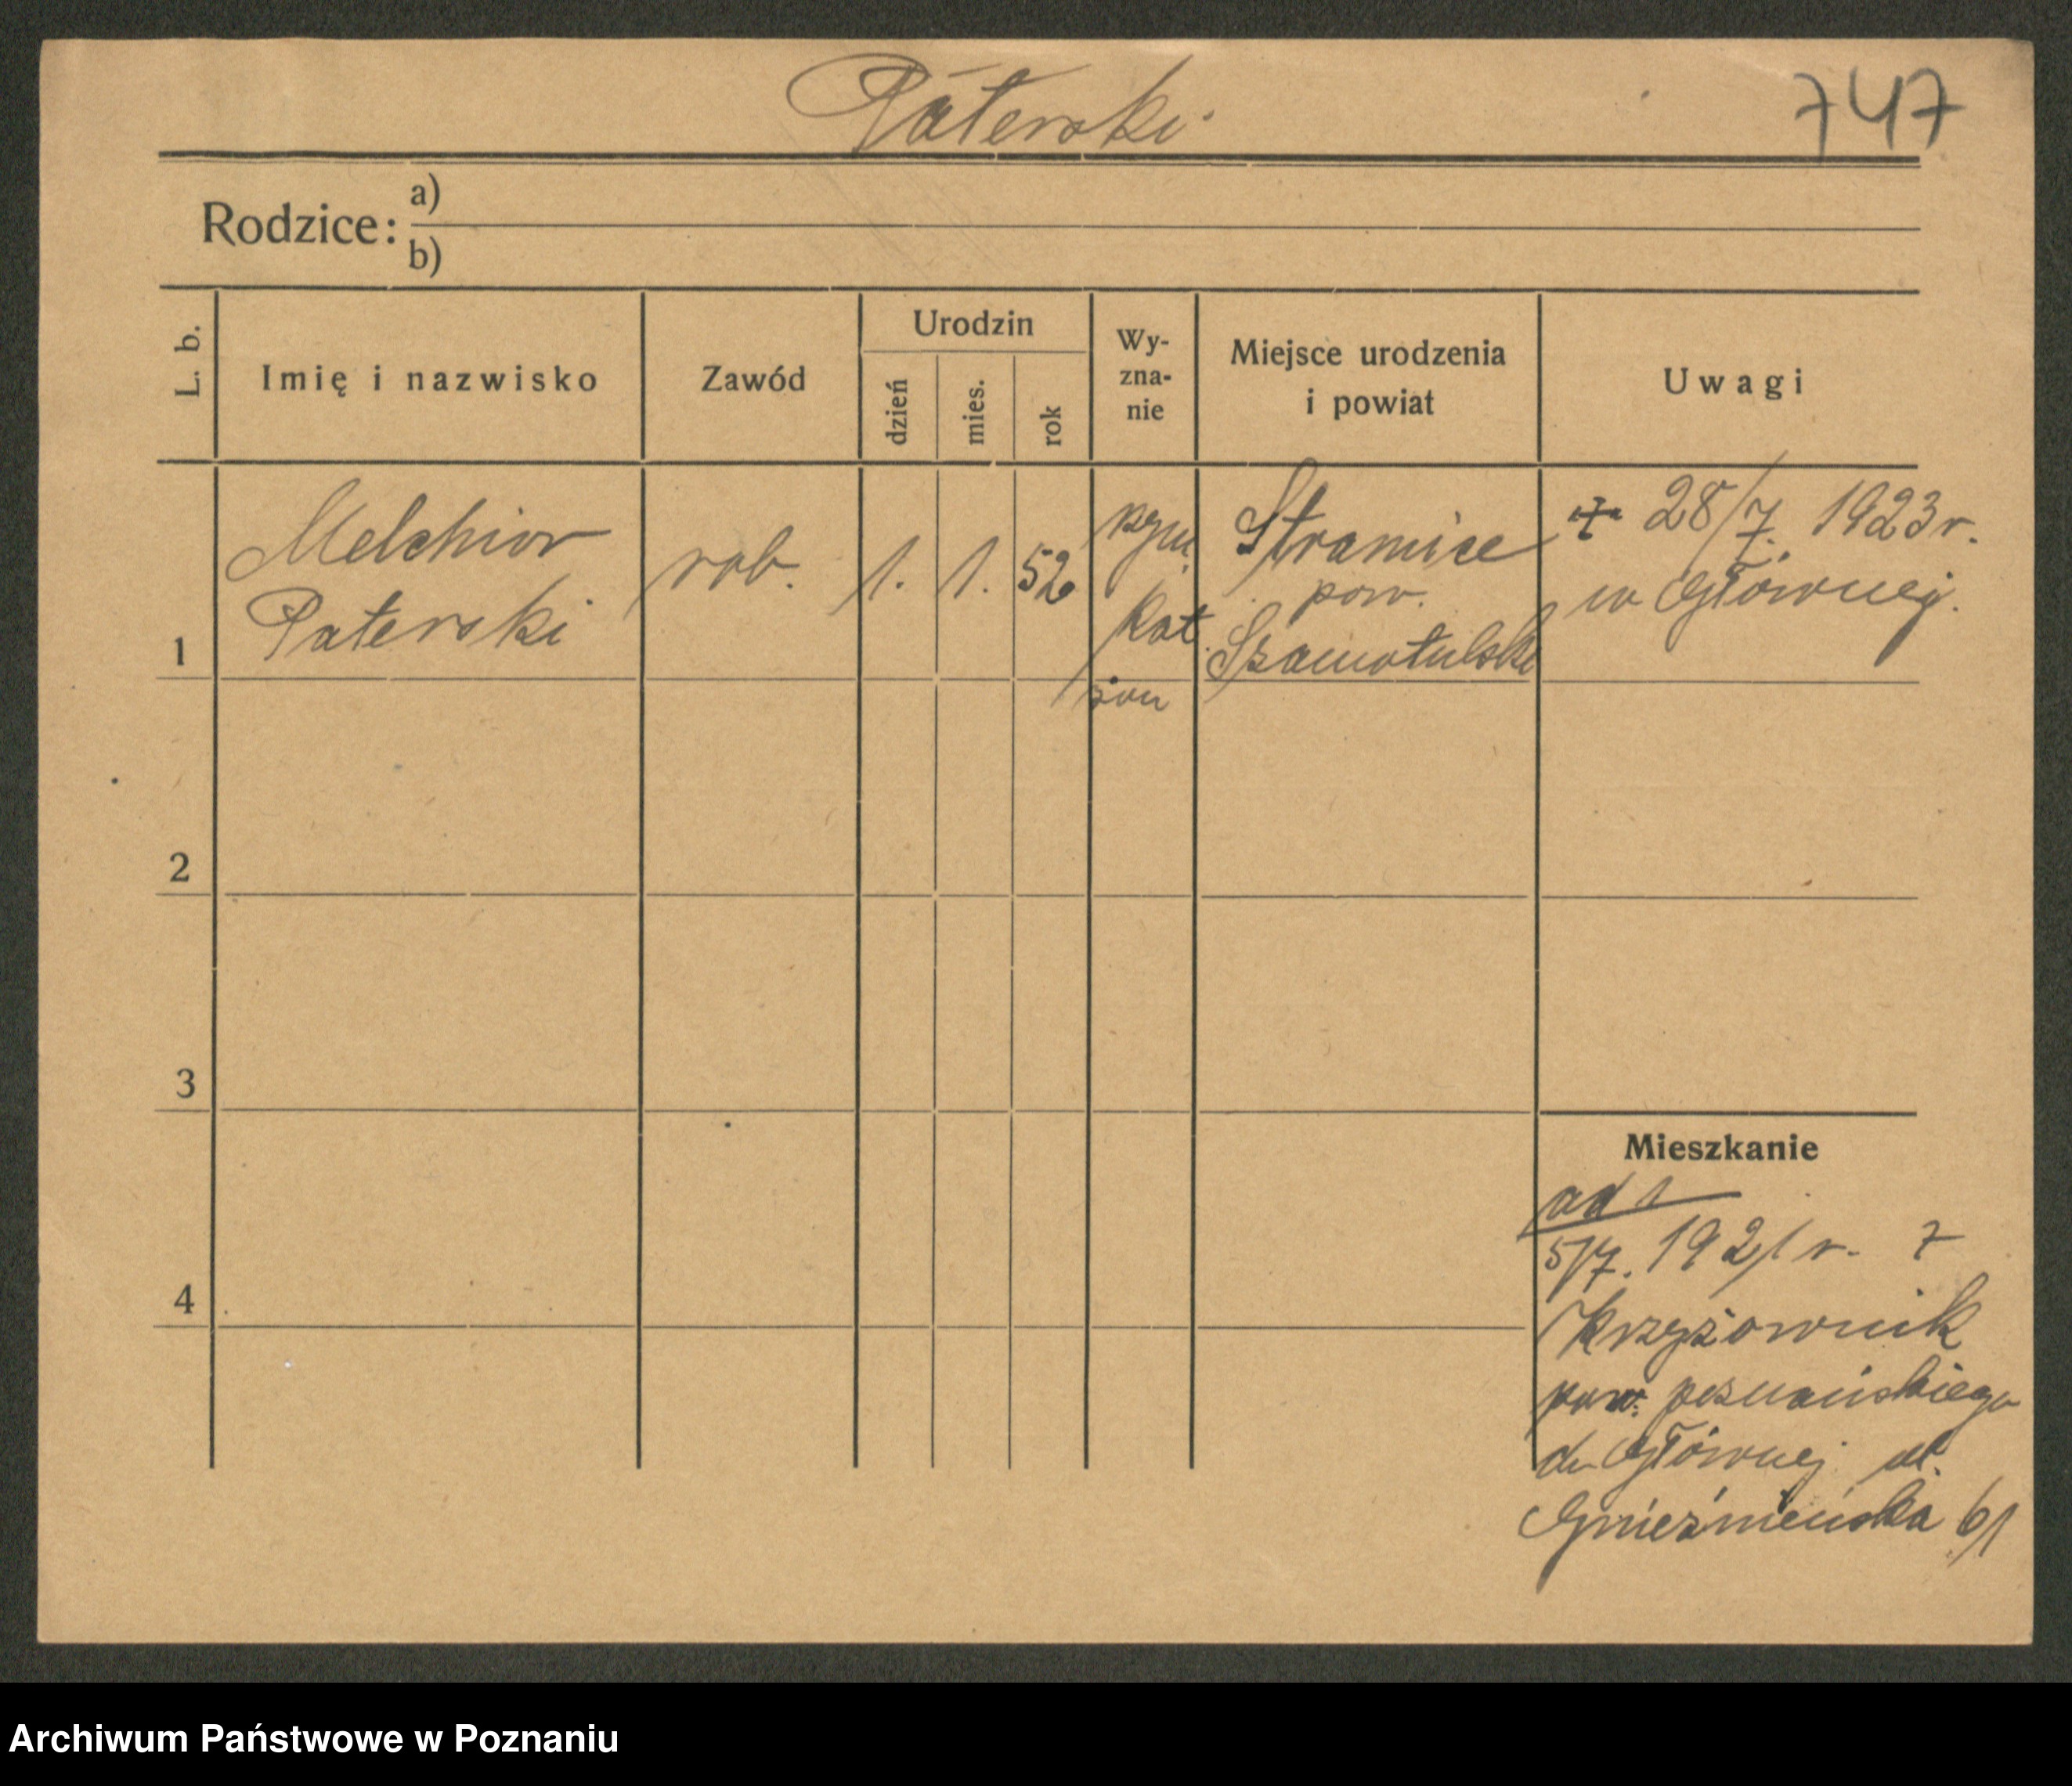 Paterski
747
Rodzice: a)
b)
L. b.
Imię i nazwisko
Zawód
Urodzin
dzień
mies.
rok
Wy-
zna-
nie
Miejsce urodzenia
i powiat
Uwagi
1
Melchior
Paterski
rob.
1.
1.
52
rzym.
kat.
żon
Stramice
pow.
Szamotulski
† 28/7. 1923 r.
w Głównej.
2
3
4
Mieszkanie
ad 1
5/7. 1921 r. z
Krzyżownik
pow. poznańskiego
do Głównej ul.
Gnieźnieńska 61
Archiwum Państwowe w Poznaniu